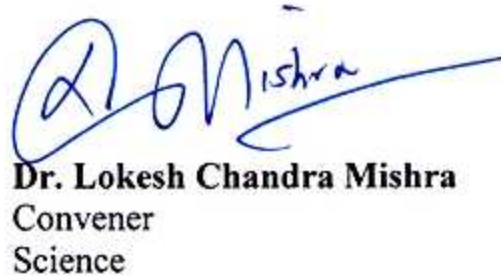 Mishra
Dr. Lokesh Chandra Mishra
Convener
Science